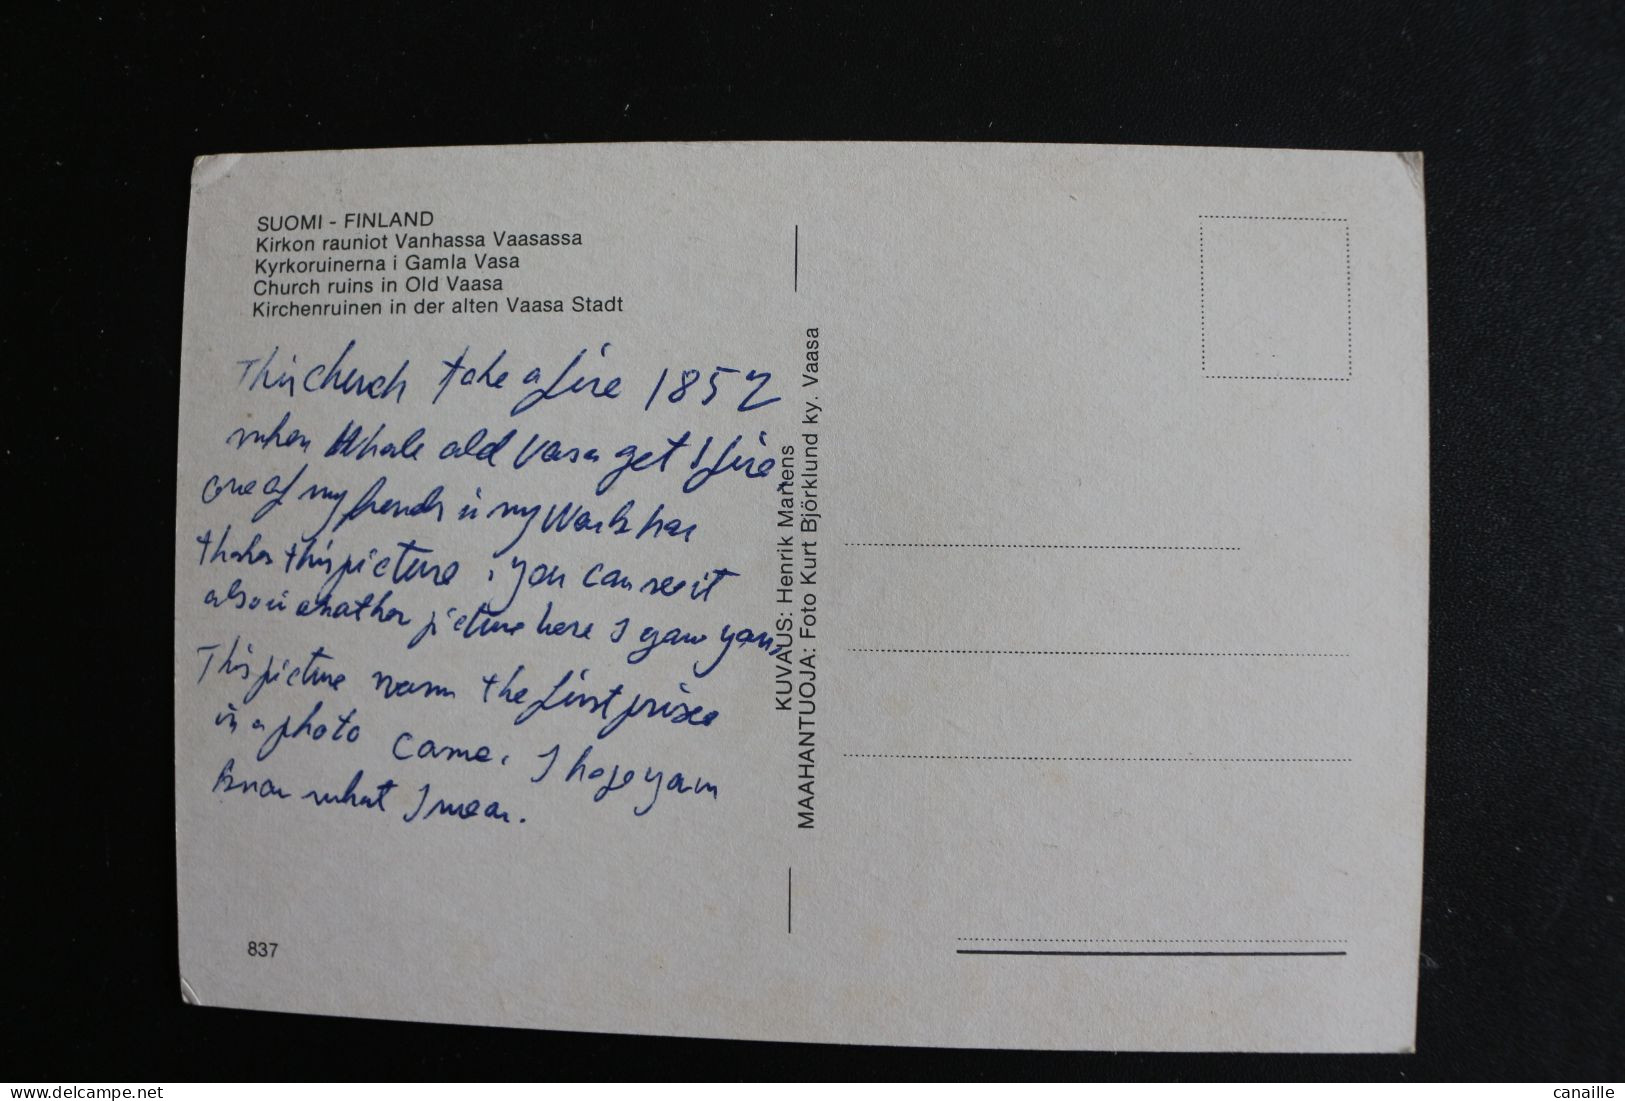 SUOMI - FINLAND
Kirkon rauniot Vanhassa Vaasassa
Kyrkoruinerna i Gamla Vasa
Church ruins in Old Vaasa
Kirchenruinen in der alten Vaasa Stadt
This church take a fire 1852
when Whole old Vasa get I fire,
one of my friends in my Work has
this picture. you can see it
also in another picture here I gave you,
This picture the first prise
in a photo came. I hope you
know what I mean.
837
KUVAUS: Henrik Martens
MAAHANTUOJA: Foto Kurt Björklund ky. Vaasa
delcampe.net
canaille